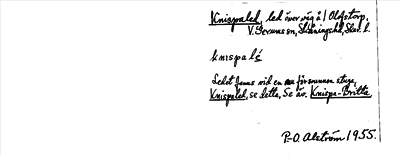 Knispaled, led över väg å / Olofstorp,
V. Gerumssn, Skänings hd, Skar. l.
knispalé
Ledet fanns vid en nu försvunnen stuga,
Knispaled, se detta, Se äv. Knispa-Britta
P-O. Alström 1955.